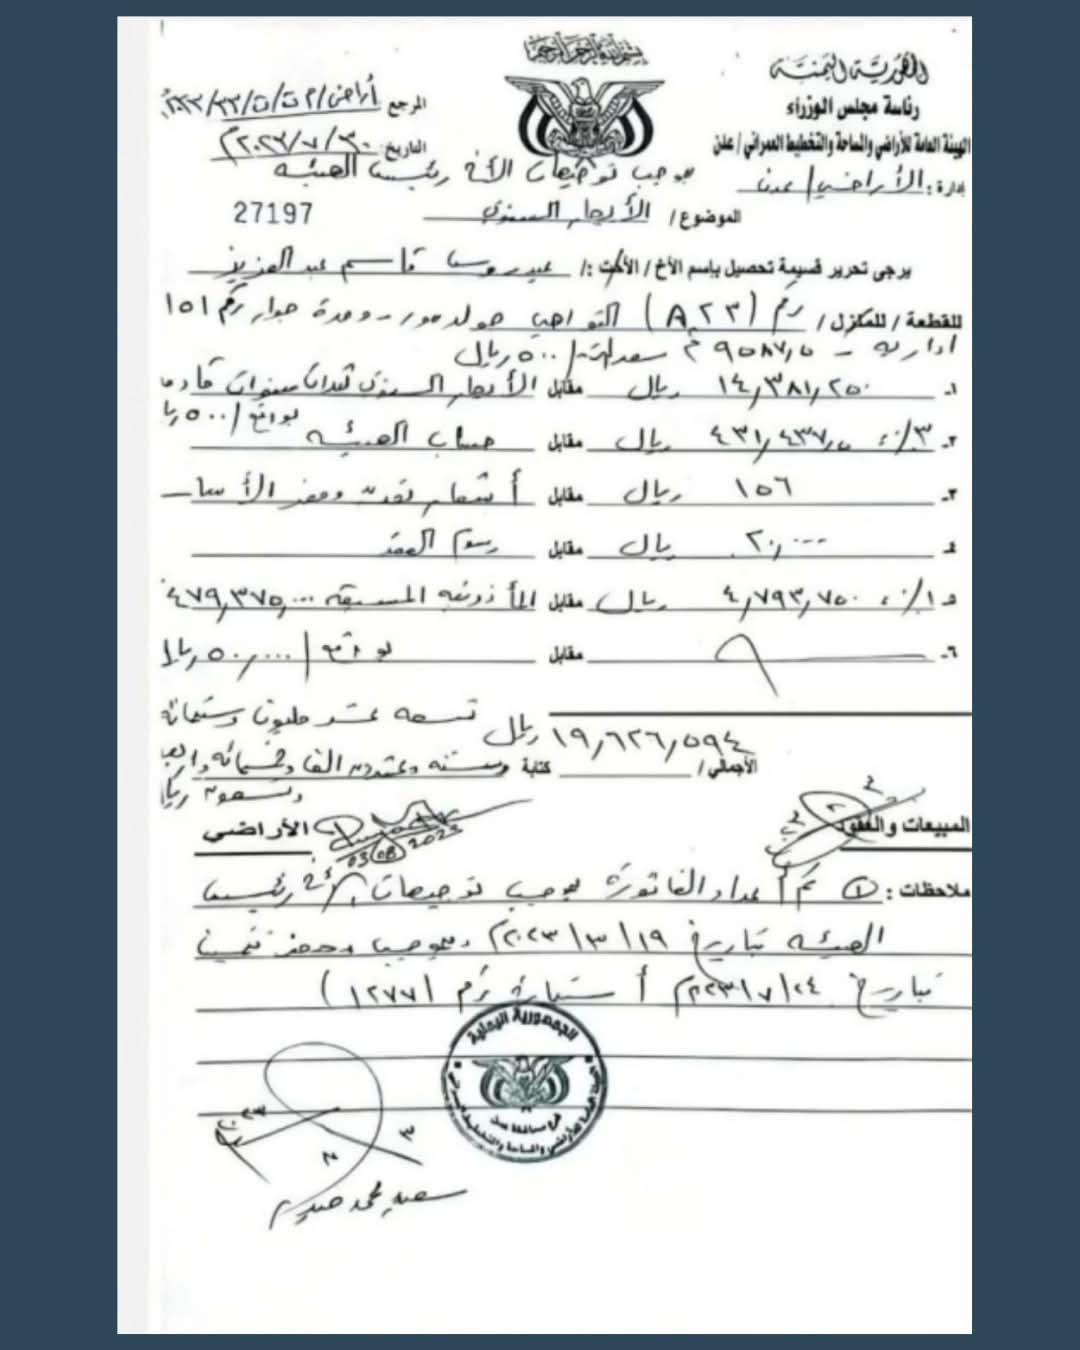 بسم الله الرحمن الرحيم
الجمهورية اليمنية
رئاسة مجلس الوزراء
الهيئة العامة للأراضي والمساحة والتخطيط العمراني / عدن
إدارة : الأراضي / عدن
المرجع أراضي/م ت/ن/٢٣/
التاريخ: ٣٠/٧/٢٠٢٣م
بموجب توجيهات الأخ رئيس الهيئة
الموضوع / الأيجار السنوي
27197
يرجى تحرير قسيمة تحصيل بإسم الأخ / الأخت :/ عيدروس قاسم عبدالعزيز
للقطعة / للمنزل / رقم (A ٢٣) التواهي جولدمور - وحدة جوار رقم ١٥١
ادارية - ٩٥٨٧,٥ م سعر المتر / ٥٠٠ ريال
١- ١٤,٣٨١,٢٥٠ ريال مقابل الأيجار السنوي لثلاث سنوات قادمة
بواقع / ٥٠٠ ريال
٢- ٣٪ ٤٣١,٤٣٧,٥ ريال مقابل حساب الهيئة
٣- ١٥٦ ريال مقابل أستمارة
٤- ٢٠,٠٠٠ ريال مقابل رسوم العقد
٥- ١٠٪ ٤,٧٩٣,٧٥٠ ريال مقابل المأذونية المسبقة ٤٧٩,٣٧٥,٠٠٠
٦- مقابل بواقع / ٥٠,٠٠٠ ريال
١٩,٦٢٦,٥٩٤ ريال تسعة عشر مليون وستمائة
الأجمالي / كتابة وستة وعشرون الفا وخمسمائة واربعة
وتسعون ريال
المبيعات والعقود
الأراضي
03/08/2023
ملاحظات : ① تم أعداد الفاتورة بموجب توجيهات الأخ رئيس
الهيئة بتاريخ ١٩/٣/٢٠٢٣م وبموجب محضر تثمين
بتاريخ ٢٤/٧/٢٠٢٣م أستمارة رقم (١٢٧٧)
الجمهورية اليمنية
الهيئة العامة للأراضي والمساحة والتخطيط العمراني
في محافظة عدن
سعيد محمد